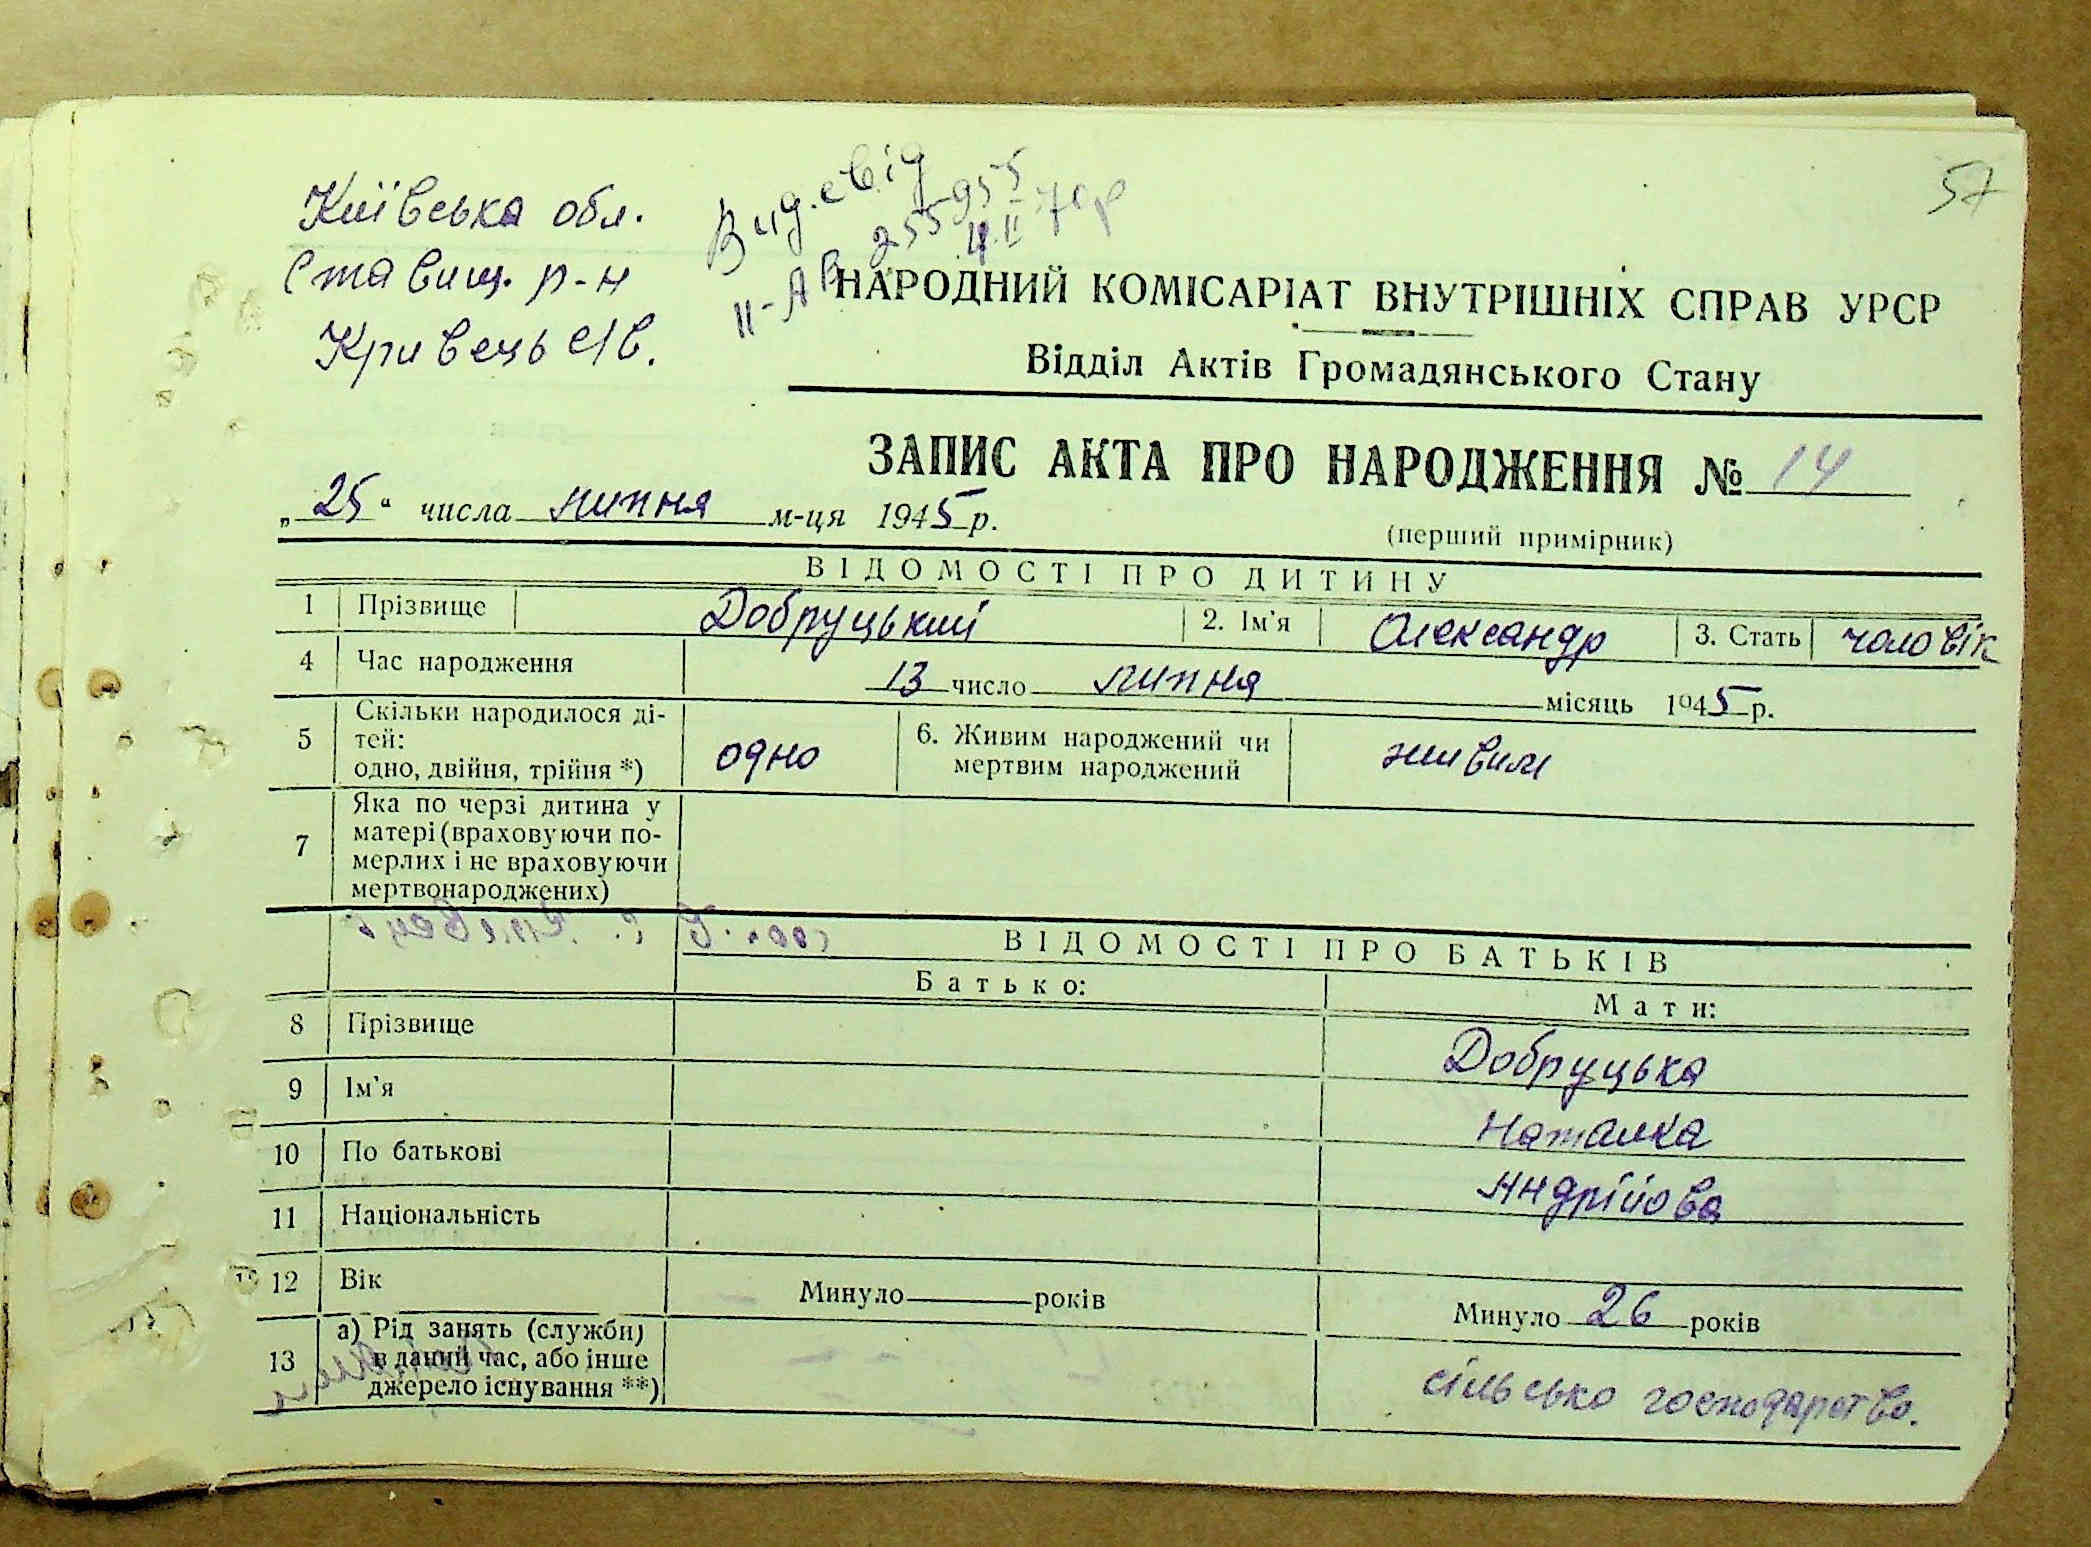 57
Київська обл.
Ставищ. р-н
Кривець с/в.
Вид. свід
II-АВ 255955
4.II 70р
НАРОДНИЙ КОМІСАРІАТ ВНУТРІШНІХ СПРАВ УРСР
Відділ Актів Громадянського Стану
ЗАПИС АКТА ПРО НАРОДЖЕННЯ № 14
„25“ числа липня м-ця 1945 р.
(перший примірник)
ВІДОМОСТІ ПРО ДИТИНУ
1 Прізвище Добруцький 2. Ім'я Олександр 3. Стать чоловік
4 Час народження 13 число липня місяць 1945 р.
5 Скільки народилося ді-
тей:
одно, двійня, трійня *) одно 6. Живим народжений чи
мертвим народжений живим
7 Яка по черзі дитина у
матері (враховуючи по-
мерлих і не враховуючи
мертвонароджених)
ВІДОМОСТІ ПРО БАТЬКІВ
Батько: Мати:
8 Прізвище Добруцька
9 Ім'я Наталка
10 По батькові Андрійова
11 Національність
12 Вік Минуло років Минуло 26 років
13 а) Рід занять (служби)
в даний час, або інше
джерело існування **) сільсько господарство.